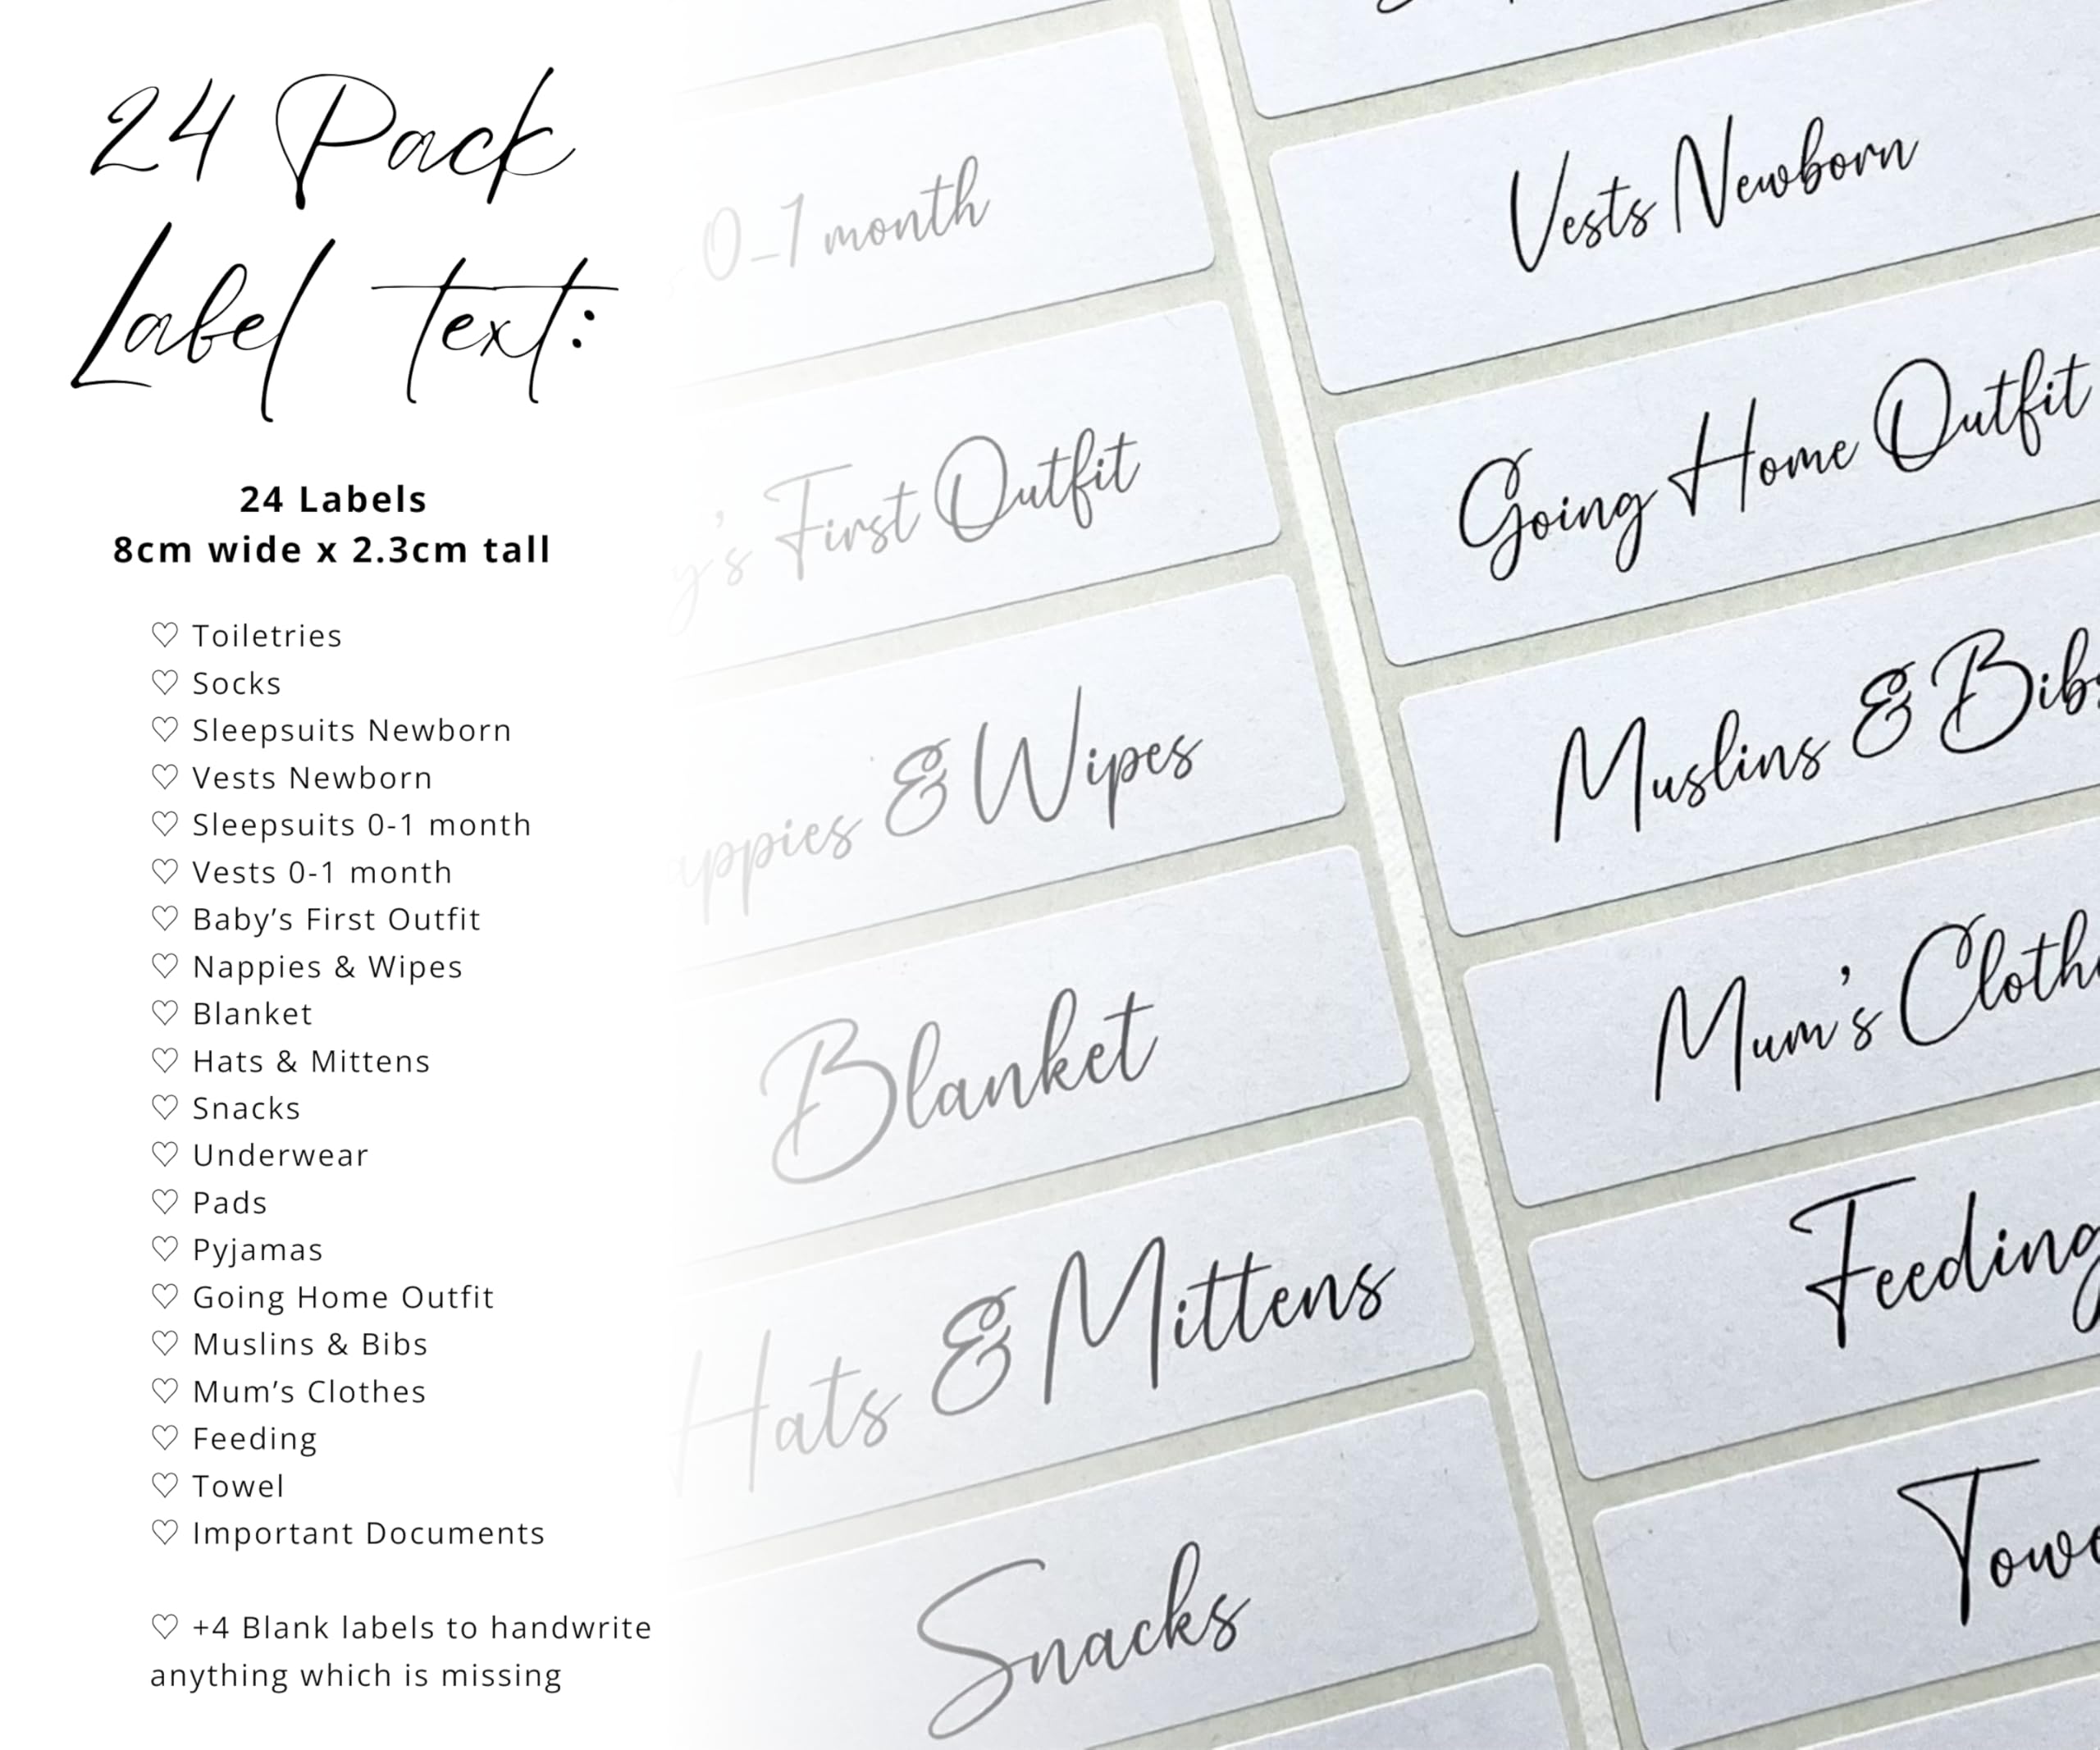 24 Pack
Label text:
24 Labels
8cm wide x 2.3cm tall
♡ Toiletries
♡ Socks
♡ Sleepsuits Newborn
♡ Vests Newborn
♡ Sleepsuits 0-1 month
♡ Vests 0-1 month
♡ Baby’s First Outfit
♡ Nappies & Wipes
♡ Blanket
♡ Hats & Mittens
♡ Snacks
♡ Underwear
♡ Pads
♡ Pyjamas
♡ Going Home Outfit
♡ Muslins & Bibs
♡ Mum’s Clothes
♡ Feeding
♡ Towel
♡ Important Documents
♡ +4 Blank labels to handwrite
anything which is missing
0-1 month
First Outfit
& Wipes
Blanket
Hats & Mittens
Snacks
Vests Newborn
Going Home Outfit
Muslins & Bibs
Mum’s
Feeding